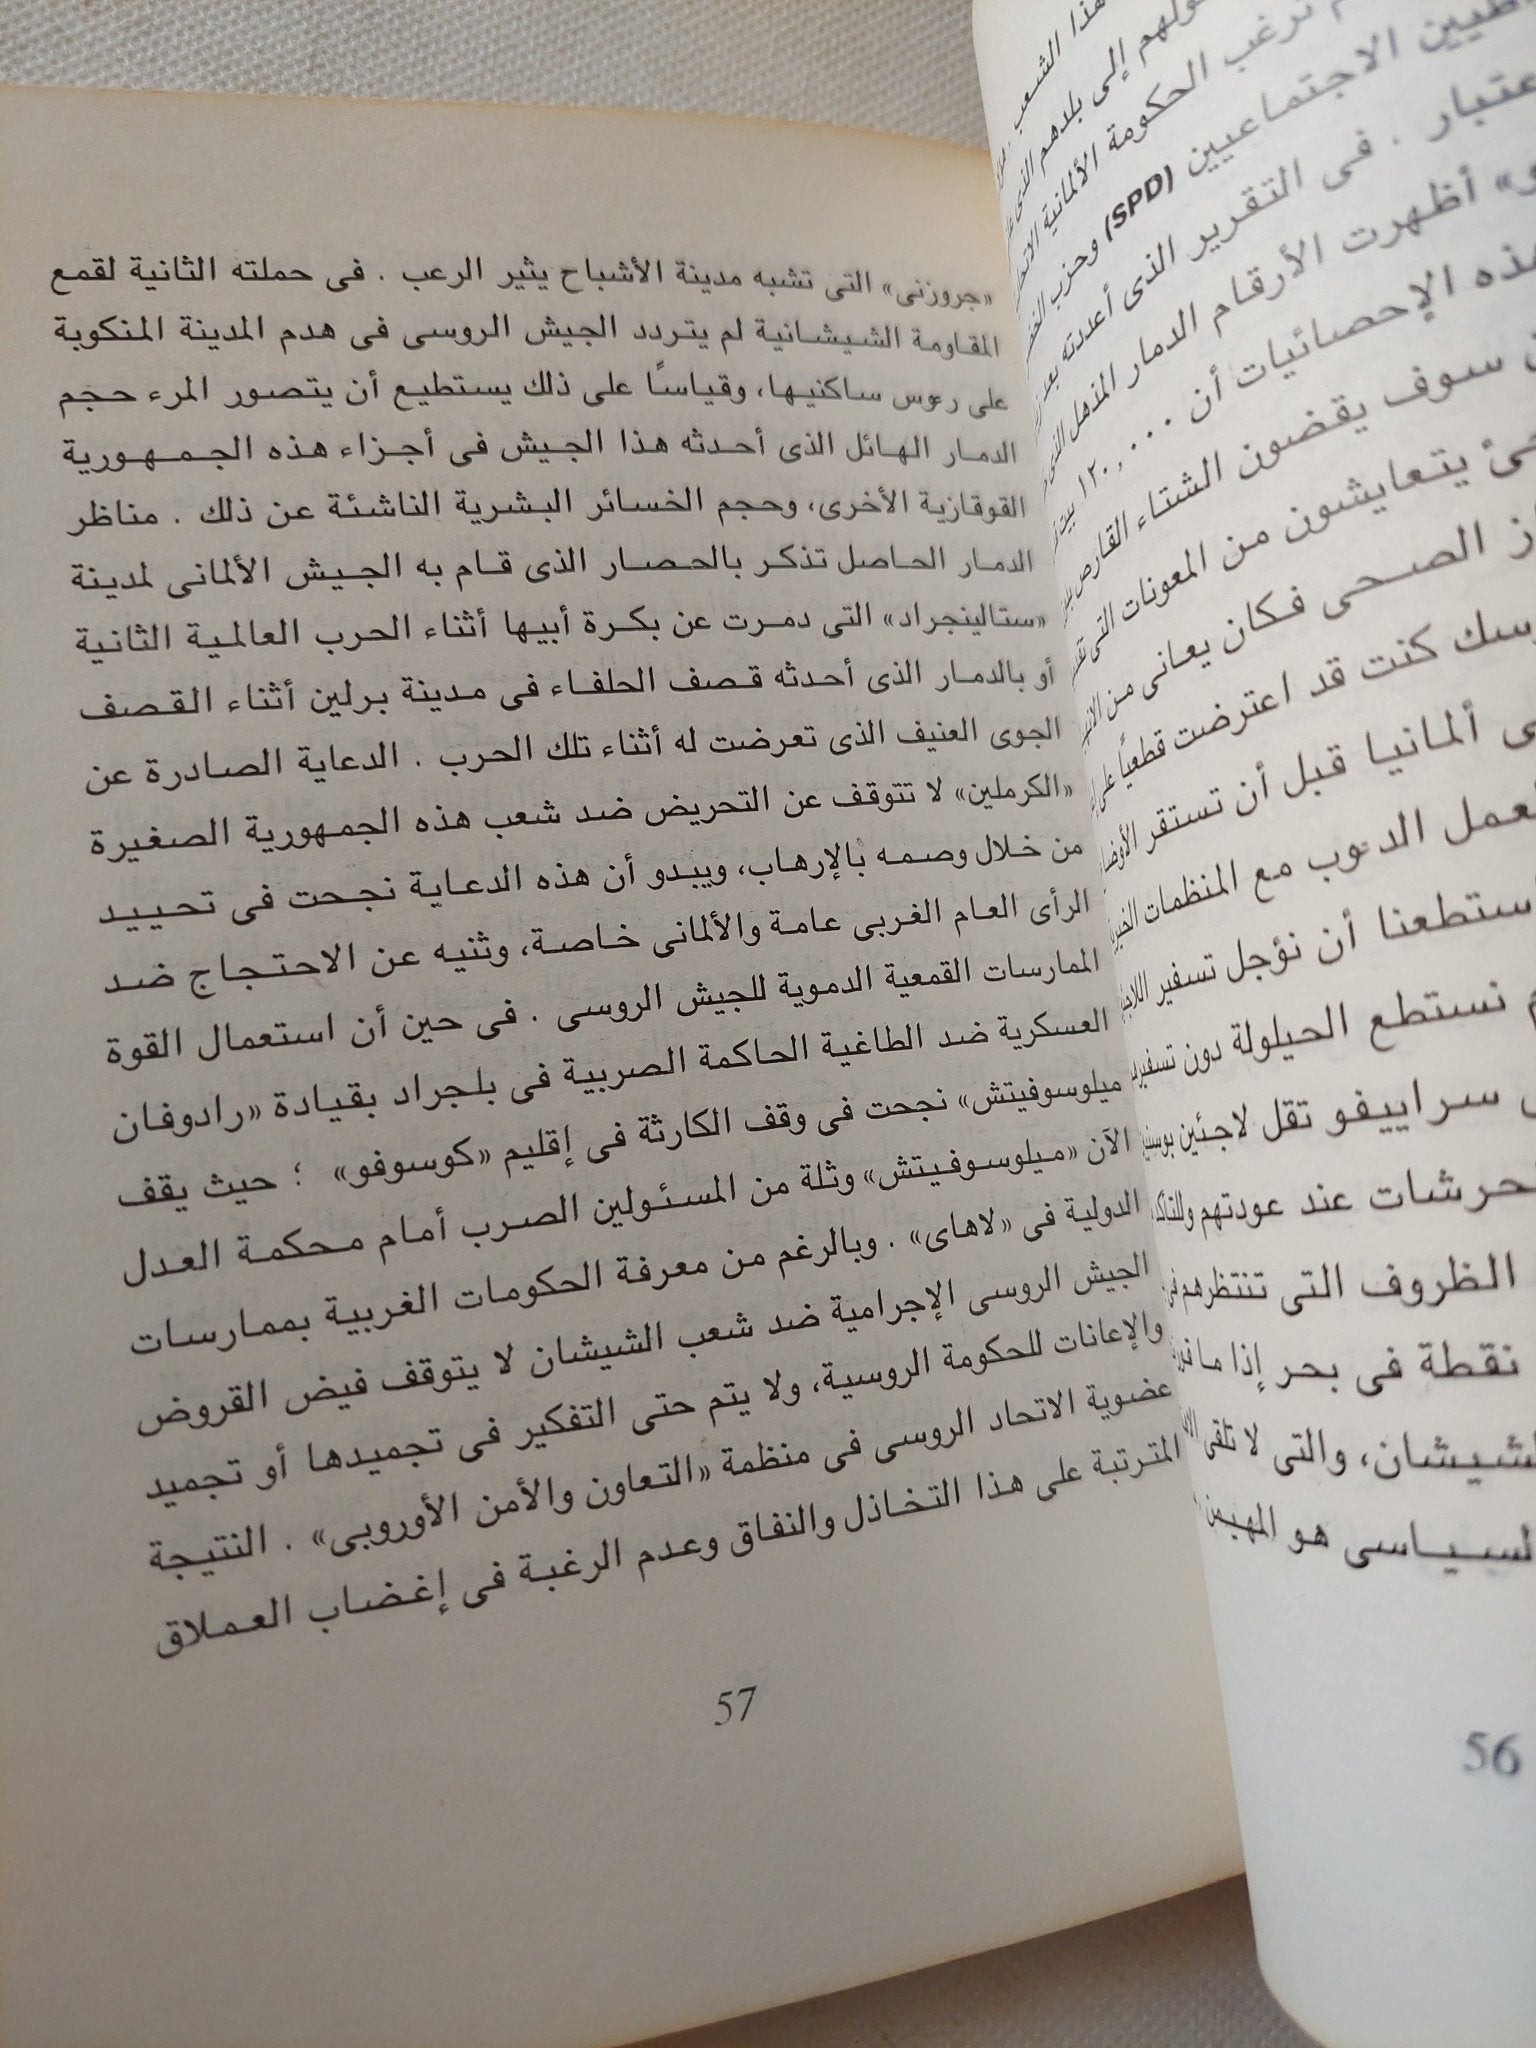 هذا الشعب
إلى بلدهم الذى
ترغب الحكومة الألمانية
الاجتماعيين (SPD) وحزب
عتبار . فى التقرير الذى أعددته بعد
و» أظهرت الأرقام الدمار المذهل الذى
هذه الإحصائيات أن ١٢٠,٠٠٠ بيت
سوف يقضون الشتاء القارص
يتعايشون من المعونات التى
الصحى فكان يعانى من
كنت قد اعترضت قطعيًا على
ألمانيا قبل أن تستقر
الدءوب مع المنظمات
ستطعنا أن نؤجل تسفير
نستطع الحيلولة دون
سراييفو تقل لاجئين
عند عودتهم
الظروف التى تنتظرهم
نقطة فى بحر إذا ما
لشيشان، والتى لا تلقى
لسياسى هو المهيمن
56
«جروزنى» التى تشبه مدينة الأشباح يثير الرعب . فى حملته الثانية لقمع
المقاومة الشيشانية لم يتردد الجيش الروسى فى هدم المدينة المنكوبة
على رءوس ساكنيها، وقياسًا على ذلك يستطيع أن يتصور المرء حجم
الدمار الهائل الذى أحدثه هذا الجيش فى أجزاء هذه الجمهورية
القوقازية الأخرى، وحجم الخسائر البشرية الناشئة عن ذلك . مناظر
الدمار الحاصل تذكر بالحصار الذى قام به الجيش الألمانى لمدينة
«ستالينجراد» التى دمرت عن بكرة أبيها أثناء الحرب العالمية الثانية
أو بالدمار الذى أحدثه قصف الحلفاء فى مدينة برلين أثناء القصف
الجوى العنيف الذى تعرضت له أثناء تلك الحرب . الدعاية الصادرة عن
«الكرملين» لا تتوقف عن التحريض ضد شعب هذه الجمهورية الصغيرة
من خلال وصمه بالإرهاب، ويبدو أن هذه الدعاية نجحت فى تحييد
الرأى العام الغربى عامة والألمانى خاصة، وثنيه عن الاحتجاج ضد
الممارسات القمعية الدموية للجيش الروسى . فى حين أن استعمال القوة
العسكرية ضد الطاغية الحاكمة الصربية فى بلجراد بقيادة «رادوفان
ميلوسوفيتش» نجحت فى وقف الكارثة فى إقليم «كوسوفو» ؛ حيث يقف
الآن «ميلوسوفيتش» وثلة من المسئولين الصرب أمام محكمة العدل
الدولية فى «لاهاى» . وبالرغم من معرفة الحكومات الغربية بممارسات
الجيش الروسى الإجرامية ضد شعب الشيشان لا يتوقف فيض القروض
والإعانات للحكومة الروسية، ولا يتم حتى التفكير فى تجميدها أو تجميد
عضوية الاتحاد الروسى فى منظمة «التعاون والأمن الأوروبى» . النتيجة
المترتبة على هذا التخاذل والنفاق وعدم الرغبة فى إغضاب العملاق
57